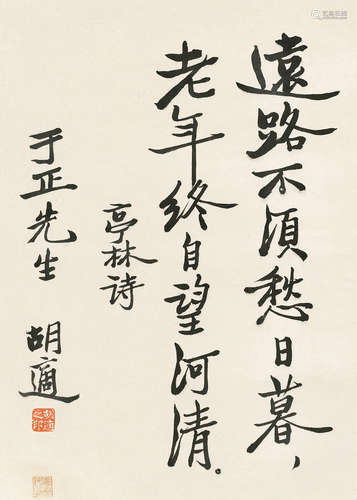 遠路不須愁日暮，
老年終自望河清。
亭林詩
于正先生
胡適